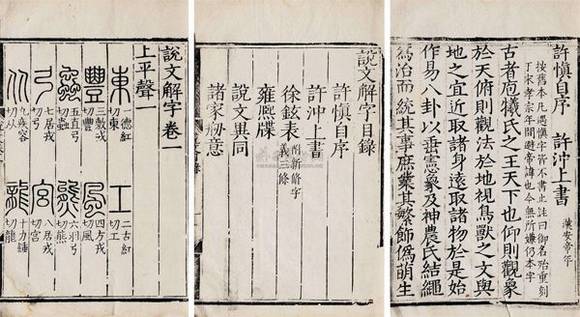 許慎自序 許沖上書
按舊本凡遇慎字皆不書止註曰御名殆重刻
于宋孝宗年間避帝諱也今無所嫌仍本字
漢安帝年
古者庖犧氏之王天下也仰則觀象
於天俯則觀法於地視鳥獸之文與
地之宜近取諸身遠取諸物於是始
作易八卦以垂憲象及神農氏結繩
為治而統其事庶業其繁飾偽萌生
說文解字目錄
許慎自序
許沖上書
徐鉉表 附新修字義三條
雍熙牒
說文異同
諸家刱意
說文解字卷一
上平聲一
東 一德紅切東 工 二古紅切工
豐 三敷戎切豐 風 四方戎切風
蟲 五直弓切蟲 熊 六羽弓切熊
弓 七居戎切弓 宮 八居戎切宮
从 九疾容切从 龍 十力鍾切龍